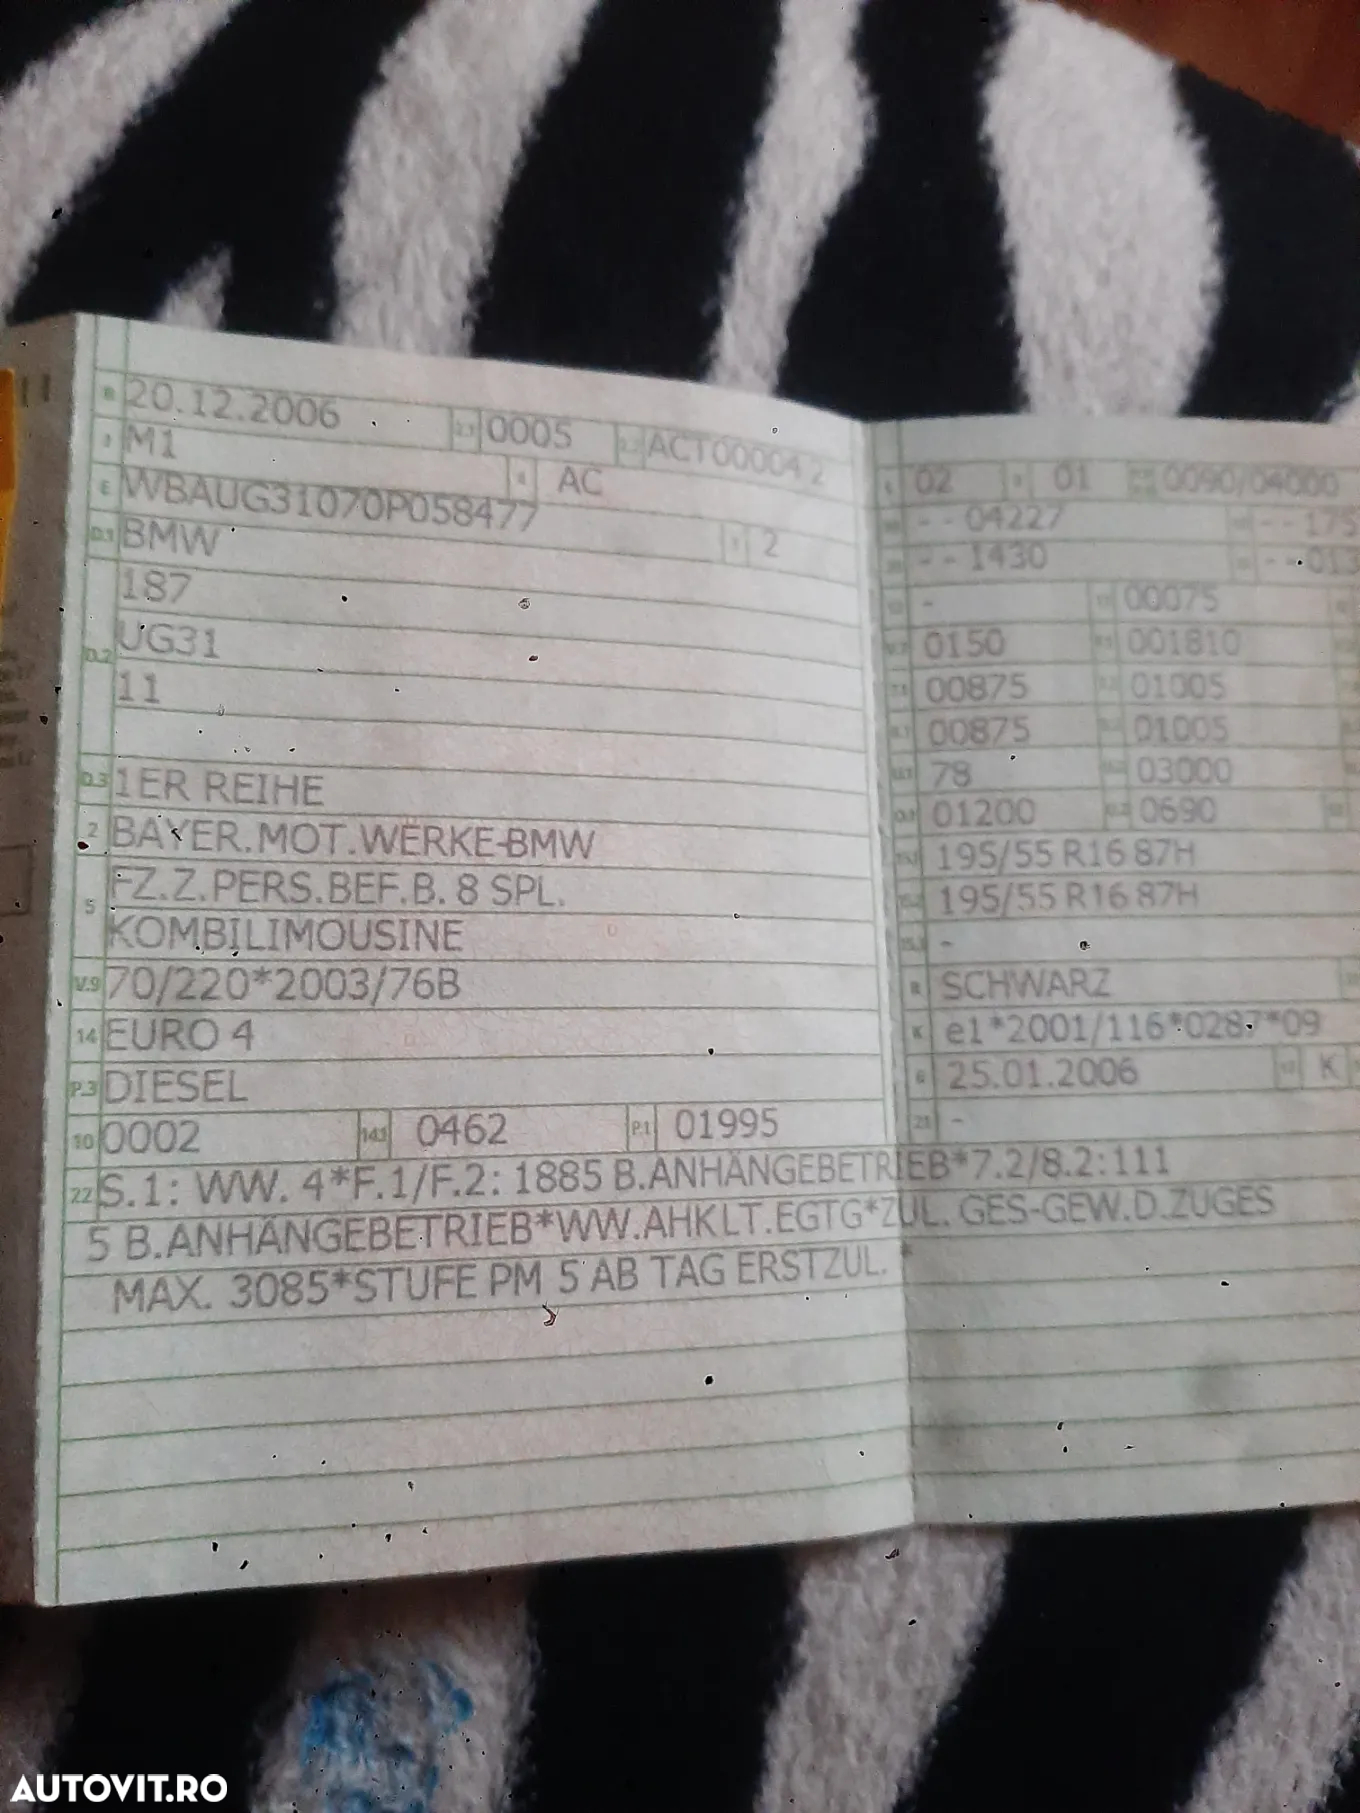 B 20.12.2006 2.1 0005 2.2 ACT00004 2
J M1 4 AC
E WBAUG31070P058477
D.1 BMW 3 2
187
D.2 UG31
11
D.3 1ER REIHE
2 BAYER.MOT.WERKE-BMW
5 FZ.Z.PERS.BEF.B. 8 SPL.
KOMBILIMOUSINE
V.9 70/220*2003/76B
14 EURO 4
P.3 DIESEL
10 0002 14.1 0462 P.1 01995
22 S.1: WW. 4*F.1/F.2: 1885 B.ANHÄNGEBETRIEB*7.2/8.2:111
5 B.ANHÄNGEBETRIEB*WW.AHKLT.EGTG*ZUL. GES-GEW.D.ZUGES
MAX. 3085*STUFE PM 5 AB TAG ERSTZUL. *
L 02 9 01 0090/04000
- - 04227 - - 175
- - 1430 - - 013
- 00075
0150 001810
00875 01005
00875 01005
78 03000
O.1 01200 O.2 0690
15.1 195/55 R16 87H
15.2 195/55 R16 87H
15.3 -
R SCHWARZ
K e1*2001/116*0287*09
6 25.01.2006 17 K
21 -
AUTOVIT.RO